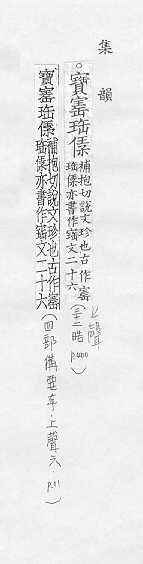 集韻
。寶寚珤 補抱切說文珍也古作寚
珤亦書作文二十六
上聲
(三十二晧 p400)
寶寚珤 補抱切說文珍也古作寚
珤亦書作文二十六
(四部備要本·上聲六·p.11)